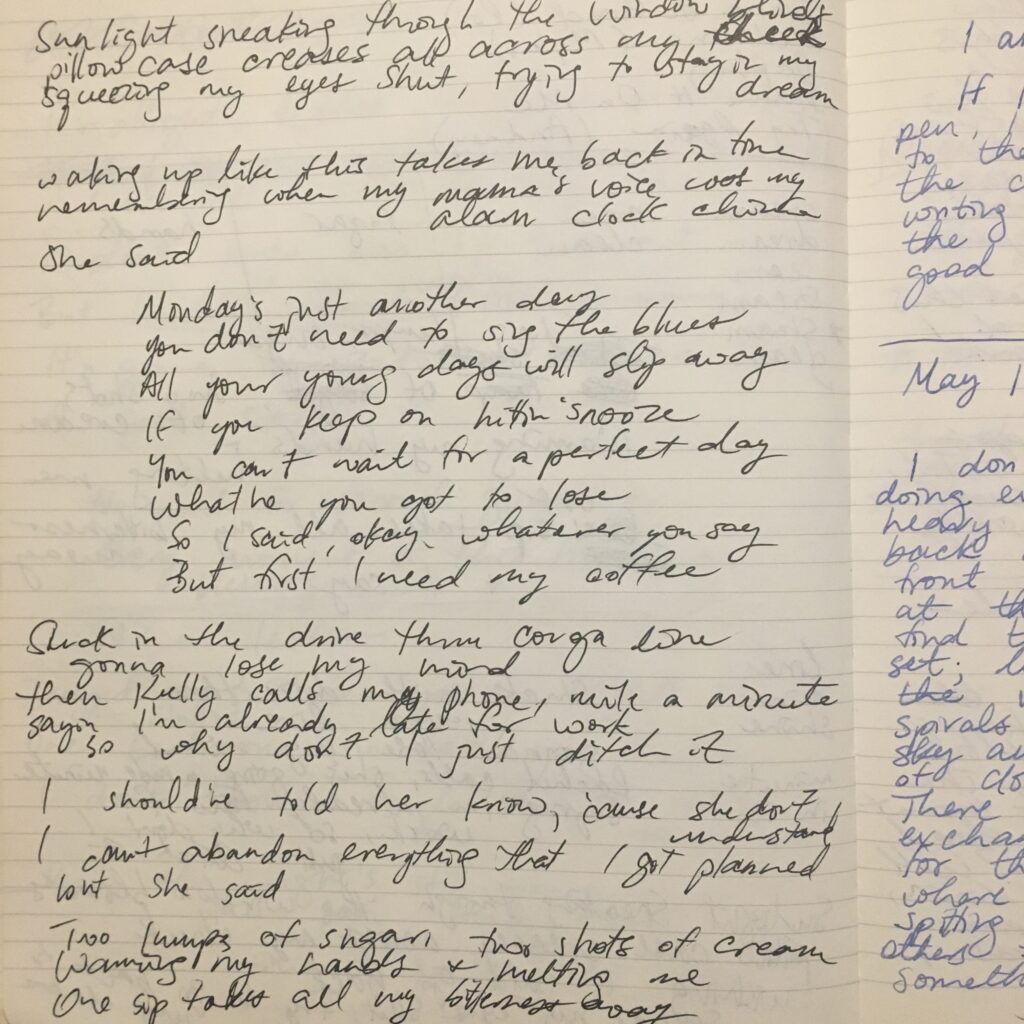 Sunlight sneaking through the window blinds
pillow case creases all across my cheek
squeezing my eyes shut, trying to stay in my
dream
waking up like this takes me back in time
remembering when my mama's voice was my
alarm clock chime
She said
Monday's just another day
you don't need to sing the blues
All your young days will slip away
If you keep on hittin' snooze
You can't wait for a perfect day
What've you got to lose
So I said, okay, whatever you say
But first I need my coffee
Stuck in the drive thru conga line
gonna lose my mind
then Kelly calls my phone, mile a minute
sayin I'm already late for work
so why don't I just ditch it
I should've told her know, 'cause she don't
understand
I can't abandon everything that I got planned
but she said
Two lumps of sugar, two shots of cream
Warming my hands & melting me
One sip takes all my bitterness away
I
If
pen,
to the
the
writing
the
good
May 1
I don
doing
heavy
back
front
at the
find
set;
the
spirals
sky
of
There
exchan
for
where
spitting
others
someth